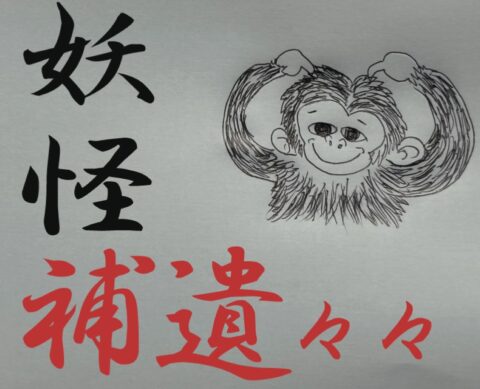 妖怪
補遺々々